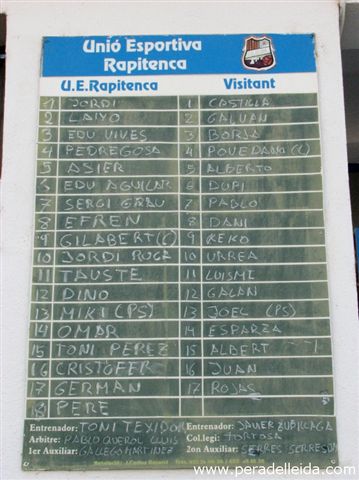 Unió Esportiva
Rapitenca
U.E.Rapitenca Visitant
1 JORDI 1 CASTILLA
2 LAIYO 2 GALVAN
3 EDU VIVES 3 BORJA
4 PEDREGOSA 4 POVEDANO (C)
5 ASIER 5 ALBERTO
6 EDU AGUILAR 6 DUPI
7 SERGI GRAU 7 PABLO
8 EFREN 8 DANI
9 GILABERT (C) 9 KEKO
10 JORDI ROCA 10 URREA
11 TAUSTE 11 LUISMI
12 DINO 12 GALAN
13 MIKI (PS) 13 JOEL (PS)
14 OMAR 14 ESPARZA
15 TONI PEREZ 15 ALBERT
16 CRISTOFER 16 JUAN
17 GERMAN 17 ROJAS
18 PERE
Entrenador: TONI TEXIDOR Entrenador: JAVIER ZUBILLAGA
Arbitre: PABLO QUEROL LLUIS Col.legi: TORTOSA
1er Auxiliar: GALLEGO MARTINEZ 2on Auxiliar: SERRES
www.peradelleida.com